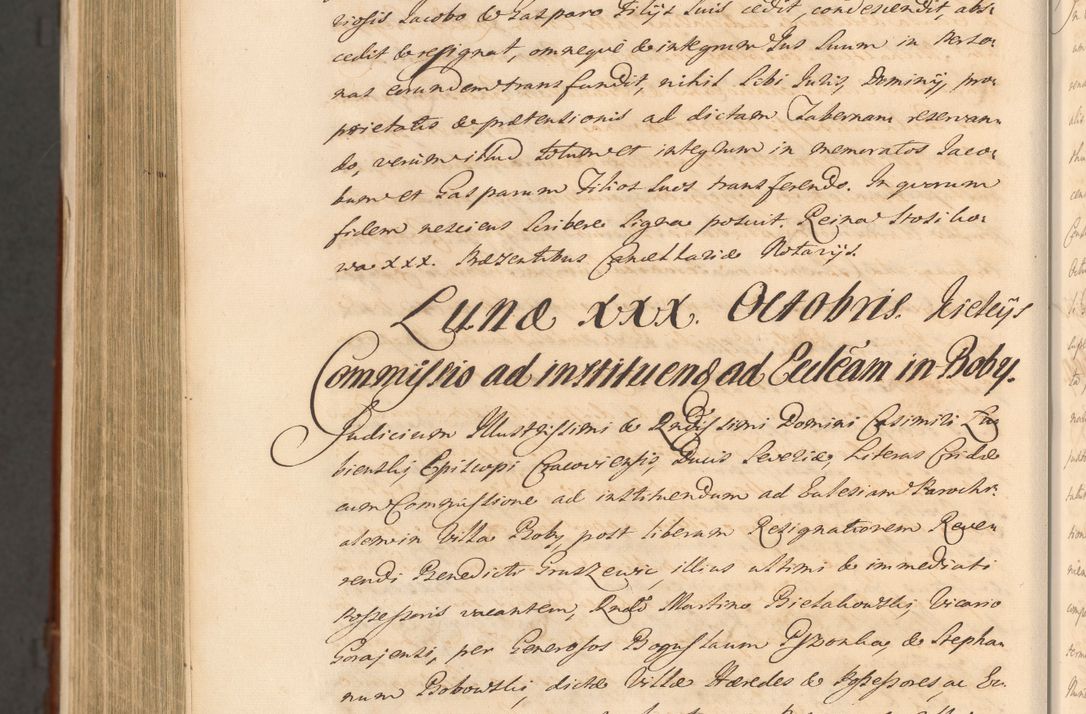 riosis Jacobo & Gasparo Filijs suis cedit, condescendit, abs-
cedit & resignat, omneque & integrum Jus suum in Perso-
nas eorundem transfundit, nihil sibi Juris, Dominij, pro-
prietatis & prætensionis ad dictam Tabernam reservan-
do, verum illud totum et integrum in memoratos Jaco-
bum et Gasparum Filios suos transferendo. In quorum
fidem nesciens scribere signa posuit. Reina Stosiko-
wa xxx. Præsentibus Cancellariæ Notarijs.
Lunæ xxx. Octobris. Kielcijs
Commissio ad instituend ad Eccleãm in Boby.
Judicium Illustrissimi & Rndissimi Domini Casimiri Lu-
bienski, Episcopi Cracoviensis, Ducis Severiæ, Literas Cridæ
cum Commissione ad instituendum ad Eclesiam Parochi-
alem in Villa Boby, post liberam Resignationem Reve-
rendi Benedicti Gruszewic, illius ultimi & immediati
Possessoris vacantem, Rndo Martino Bielakowski, Vicario
Gorajensi, per Generosos Boguslaum Pszonka, & Stepha-
num Bobowski, dictæ Villæ Hæredes & Possessores, ac Ec-